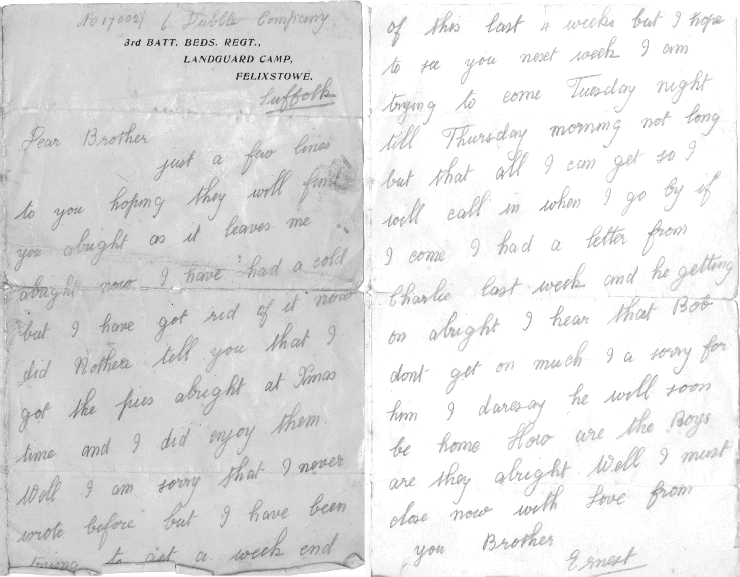 No 17002/ C. Dubble Company
3rd BATT. BEDS. REGT.,
LANDGUARD CAMP,
FELIXSTOWE.
Suffolk
Dear Brother
just a few lines
to you hoping they will find
you alright as it leaves me
alright now I have had a cold
but I have got rid of it now
did Mother tell you that I
got the pies alright at Xmas
time and I did enjoy them.
Well I am sorry that I never
wrote before but I have been
trying to get a week end
of this last 4 weeks but I hope
to see you next week I am
trying to come Tuesday night
till Thursday morning not long
but that all I can get so I
will call in when I go by if
I come I had a letter from
Charlie last week and he getting
on alright I hear that Bob
dont get on much I a sorry for
him I daresay he will soon
be home How are the Boys
are they alright Well I must
close now with Love from
you Brother
Ernest